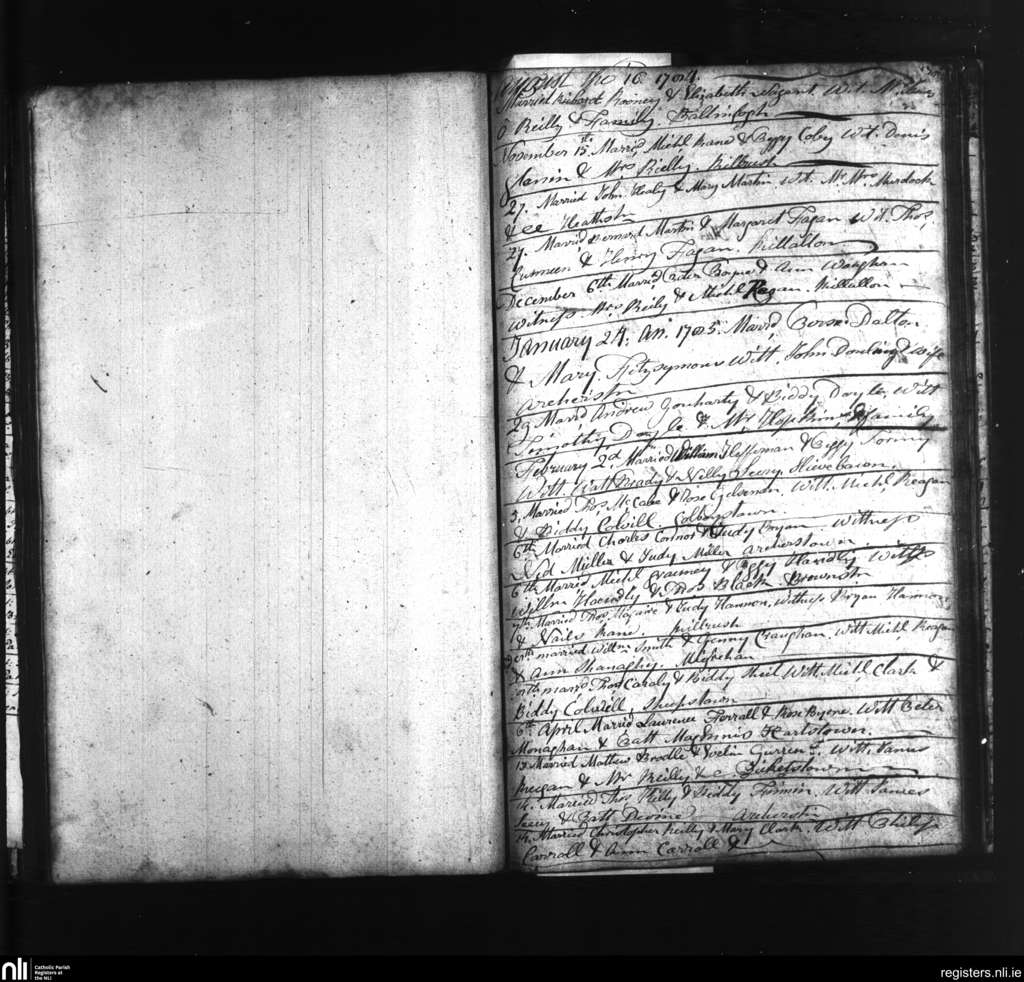 August the 1784.
Married Richard Rooney & Elizabeth Wit.
O Reilly & Family.
November 15th Married Michl Kane & Peggy Coley Wit. Denis
& Mrs Reilly. Kilbrush
27. Married John Healy & Mary Martin Wit. Mr Mrs Murdock
&cc Heathstn
29. Married Bernard Martin & Margaret Fagan Wit. Thos,
& Henry Fagan. Killallon
December 6th Married Peter Boyne & Ann Vaughan
Witness Mrs Reily & Michl Regan. Killallon
January 24, An. 1785. Marrd, Dalton
& Mary Fitzsymons Witt. John Dowling & Wife
Archerstn
29 Marrd Andrew & Biddy Doyle, Witt
Timothy Doyle & Mr Hopkins & family
February 2d Married William Heffernan &
Witt Patt Brady & Nelly
5, Married Thos McCabe & Rose Witt Michl, Reagan
& Biddy Colvill. Colbinstown.
6th Married Charles Connor & Judy Bryan Witness
Ned Miller & Judy Miller Archerstown
6th Married Michl & Peggy Handly Witss
Willm Handly & Thos Black. Brownstn
7th Married Thos Maguire & Judy Hannon, Witness Bryan Hannon
& Kane. Kilbrush
married Willm Smith & Jenny Vaughan, Witt Michl Reagan
& Ann Shanaghy.
marrd Thos & Biddy Witt Michl, Clark &
Biddy Colwell, Sheepstown
6th April Marrid Laurence Ferrall & Rose Byrne Witt Peter
Monaghan & Patt Magennis Hartstown.
13 Married Mathew & Witt. James
Reegan & Mr Reilly &c
14. Married Thos & Biddy Witt James
& Patt Devine Archerstn
14. Married Christopher Reilly & Mary Clark. Witt Philip
Carroll & Ann Carroll &
nli
Catholic Parish
Registers at
the NLI
registers.nli.ie